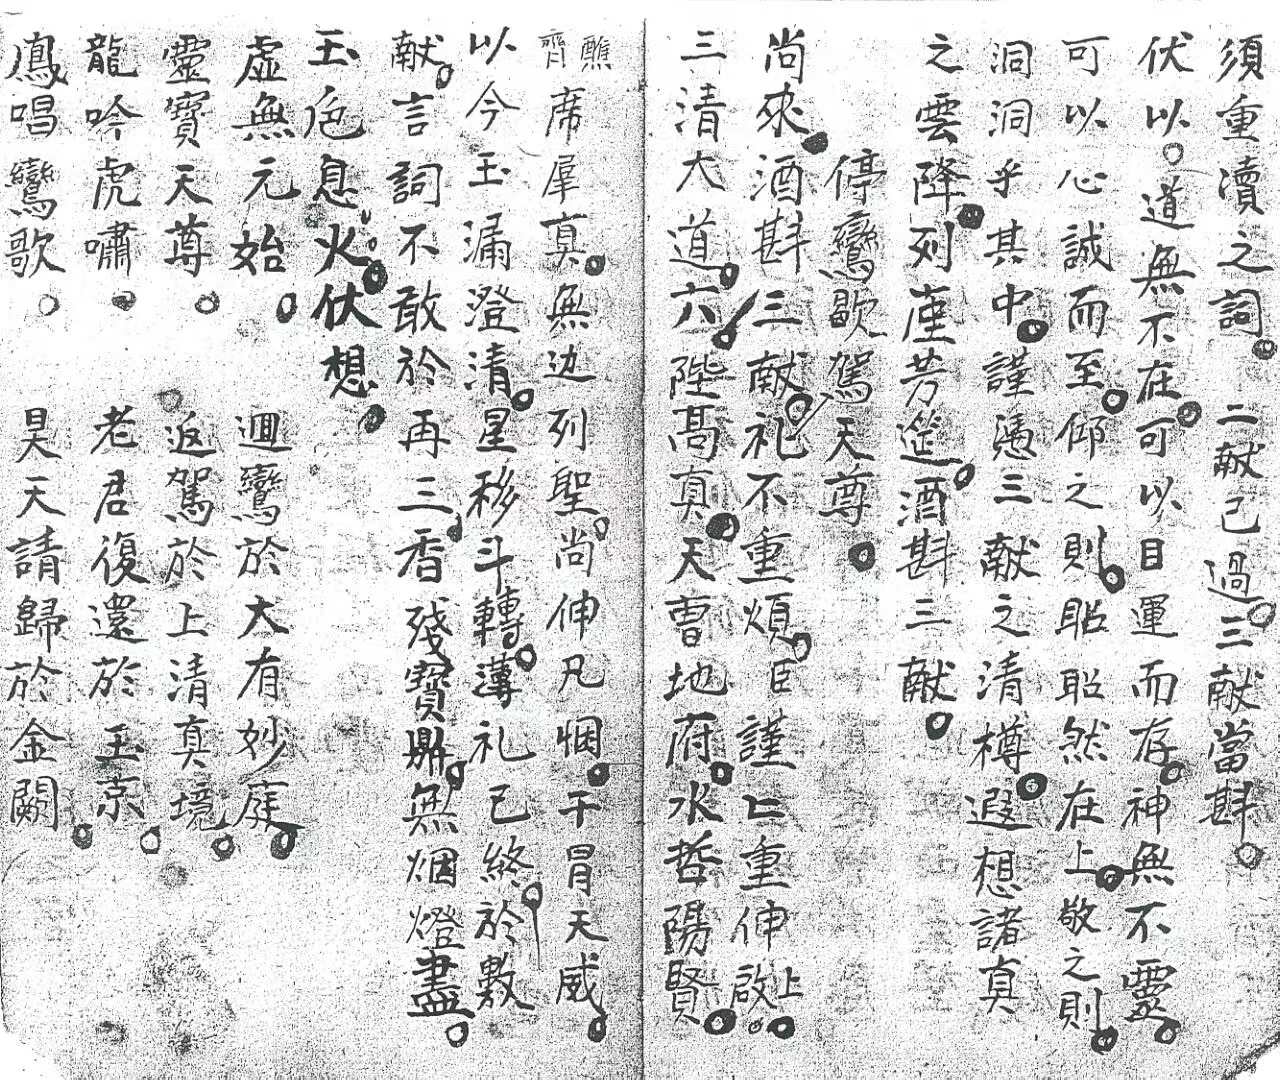 須重瀆之詞。二献已過。三献當斟。
伏以。道無不在。可以目運而存。神無不靈。
可以心誠而至。仰之則。昭昭然在上。敬之則。
洞洞乎其中。謹憑三献之清樽。遐想諸真
之雲降。列座芳筵。酒斟三献。
停鸞歇駕天尊。
尚來。酒斟三献。礼不重煩。臣謹上重伸啟上。
三清大道。六陛高真。天曹地府。水哲陽賢。
醮齊席羣真。無边列聖。尚伸凡悃。干冒天威。
以今玉漏澄清。星移斗轉。薄礼已終。於敷
献。言詞不敢於再三。香殘寶鼎。無烟燈盡。
玉色息火。伏想。
虛無元始。迴鸞於大有妙庭。
靈寶天尊。返駕於上清真境。
龍吟虎嘯。老君復還於玉京。
鳳唱鸞歌。昊天請歸於金闕。